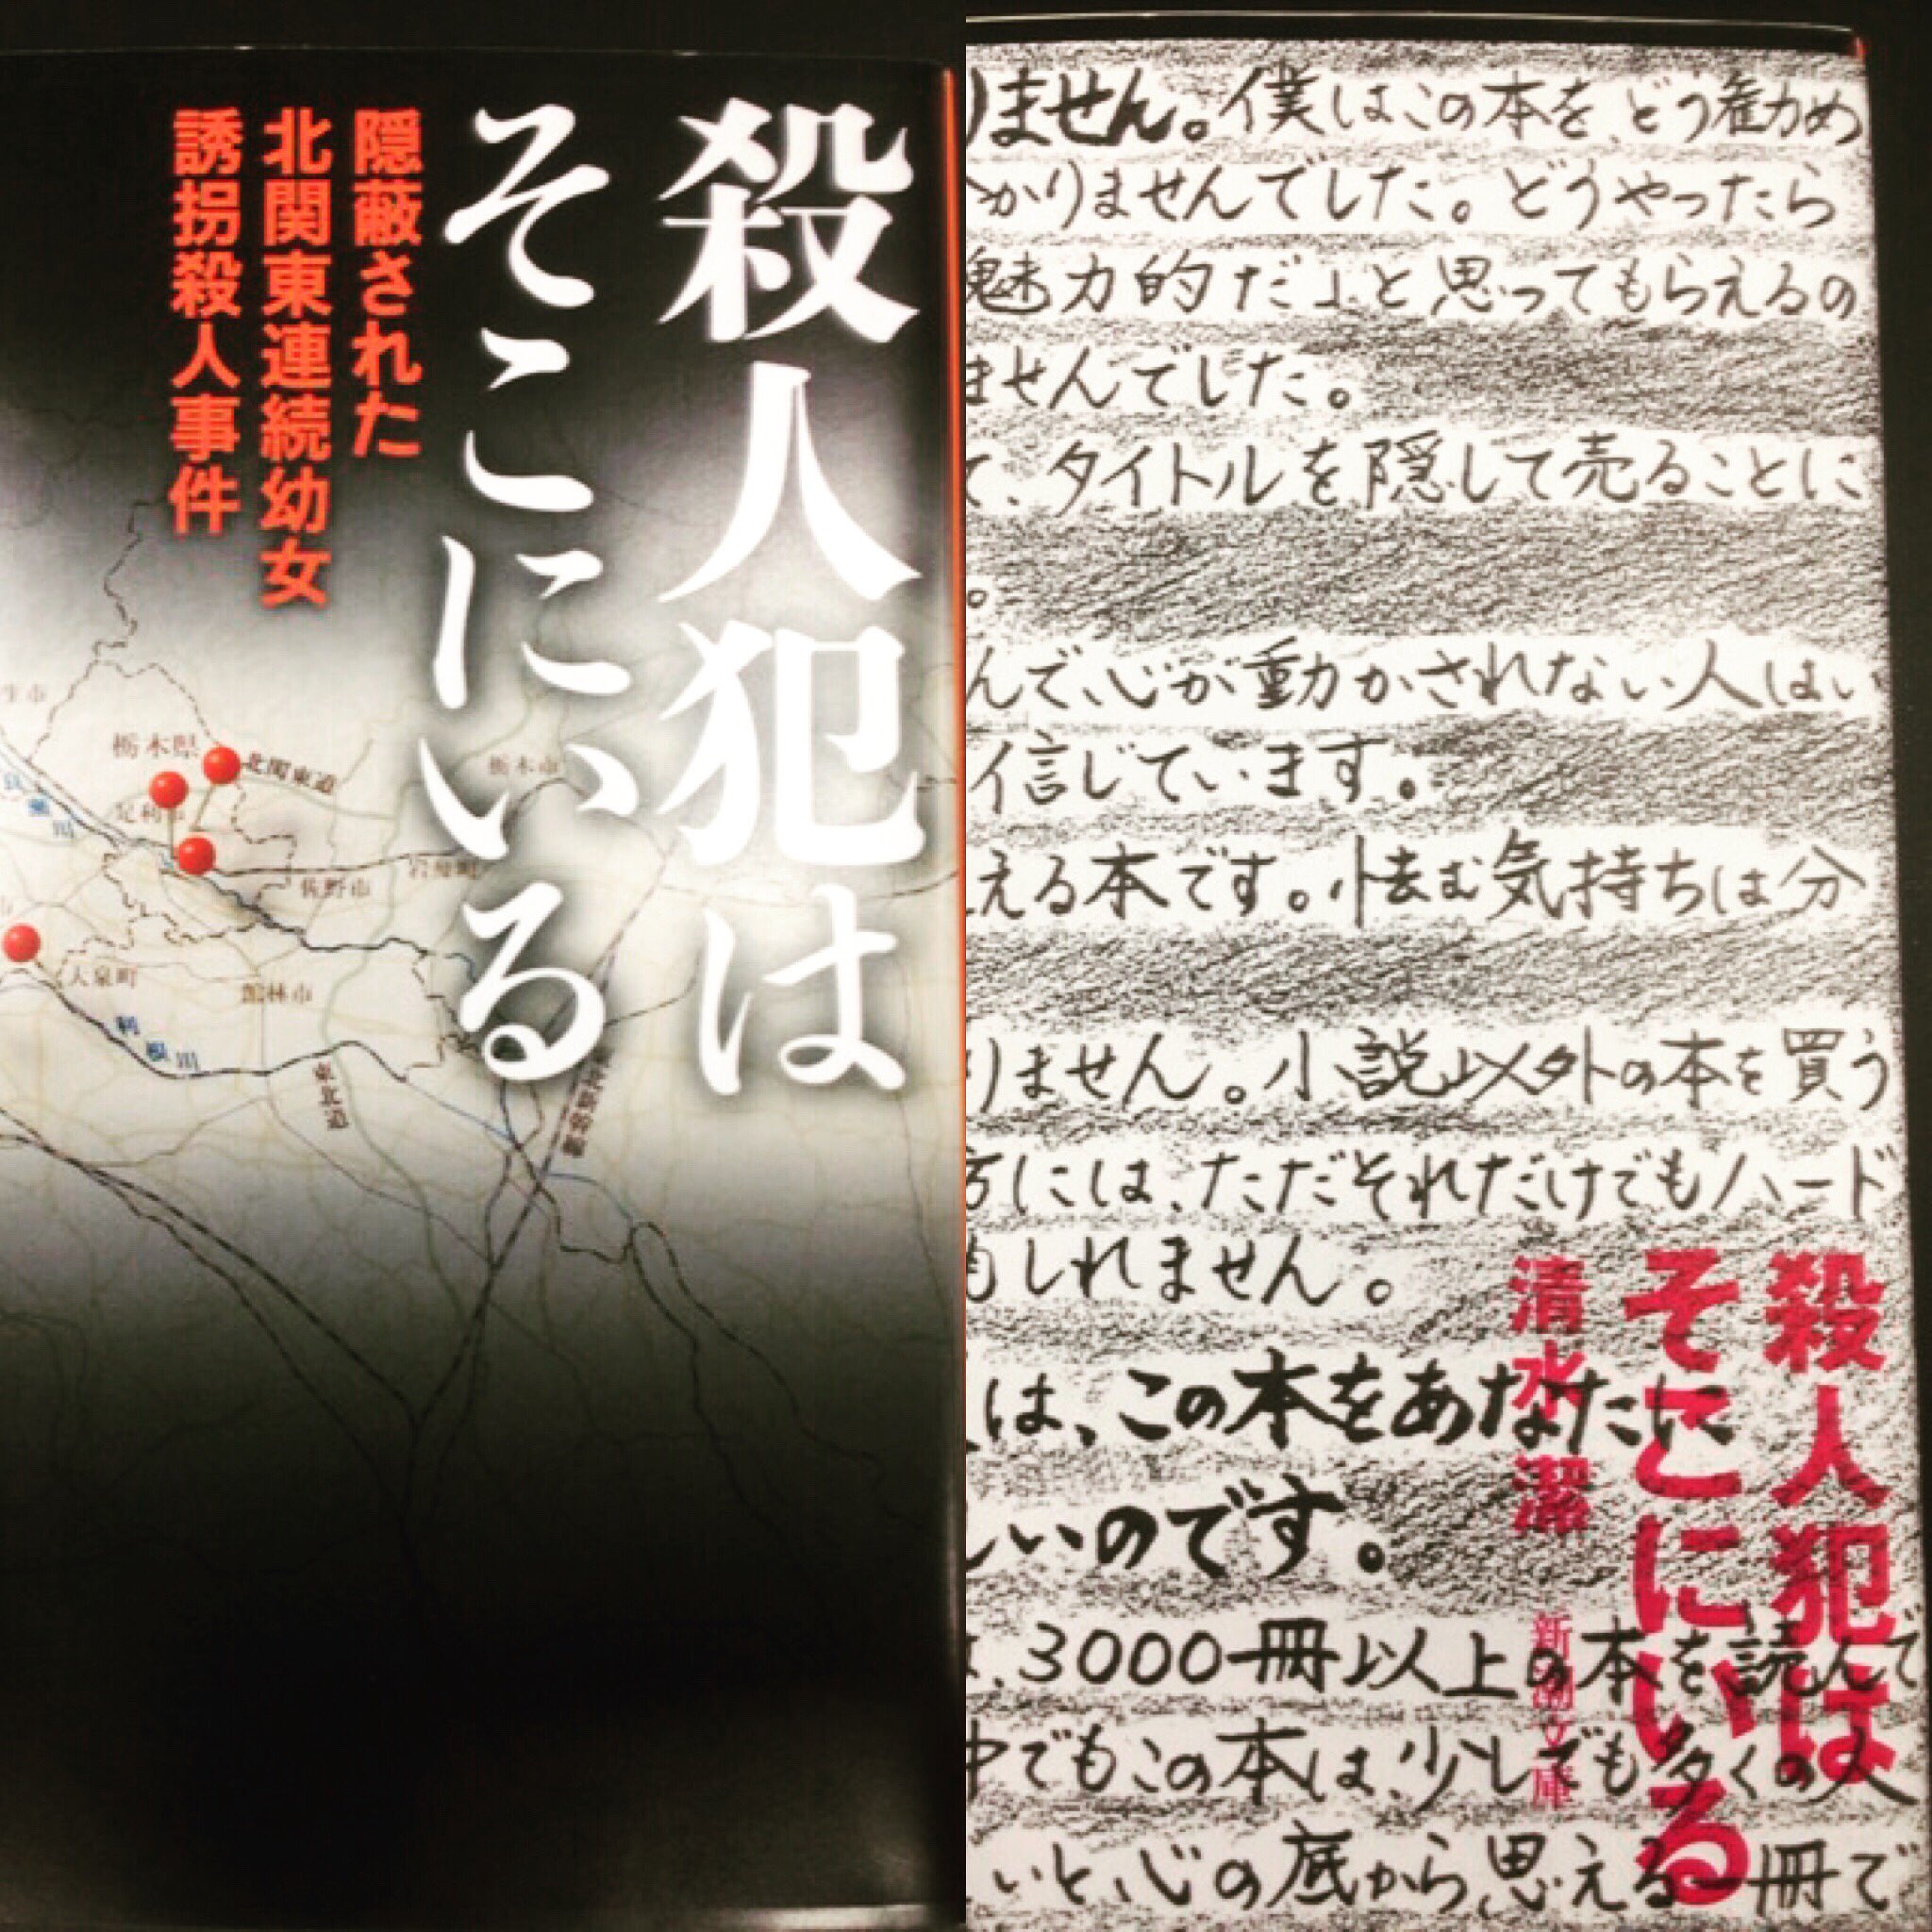 殺人犯は
そこにいる
隠蔽された
北関東連続幼女
誘拐殺人事件
生市
栃木県
北関東道
栃木市
足利市
佐野市
岩舟町
大泉町
館林市
利根川
東北道
りません。僕はこの本を、どう勧め
かりませんでした。どうやったら
魅力的だ」と思ってもらえるの
ませんでした。
て、タイトルを隠して売ることに
。
んで、心が動かされない人はい
信じています。
える本です。怯む気持ちは分
りません。小説以外の本を買う
方には、ただそれだけでもハード
もしれません。
は、この本をあなたに
しいのです。
、3000冊以上の本を読んで
中でもこの本は、少しでも多くの人
いと、心の底から思える一冊で
殺人犯は
そこにいる
清水潔
新潮文庫